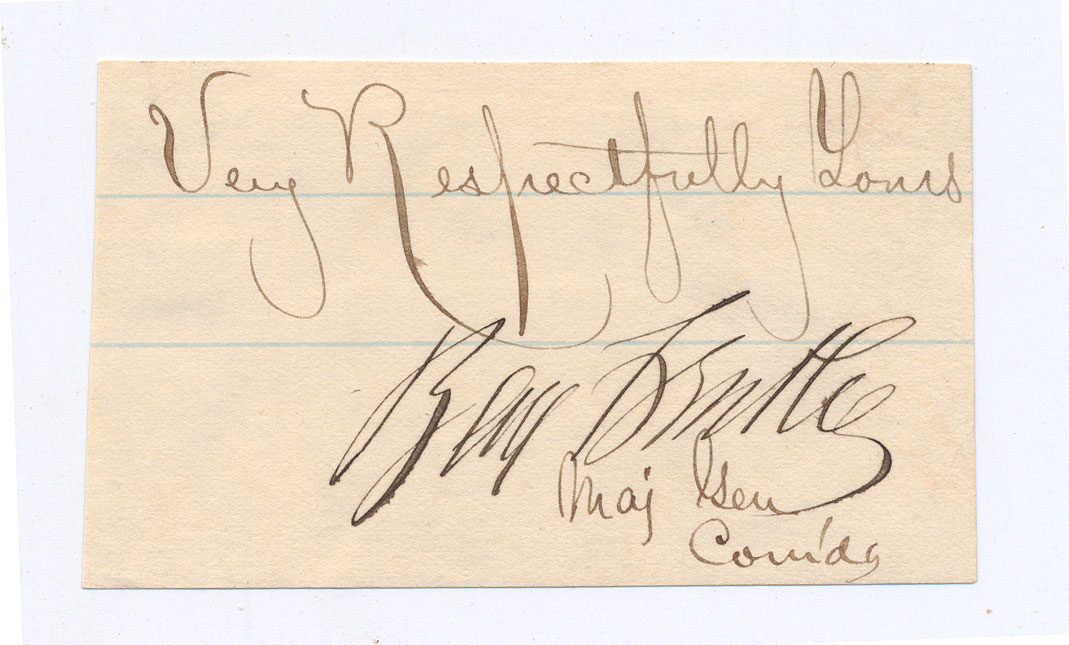 Very Respectfully Yours
Benj F Butler
Maj Gen
Com'dg